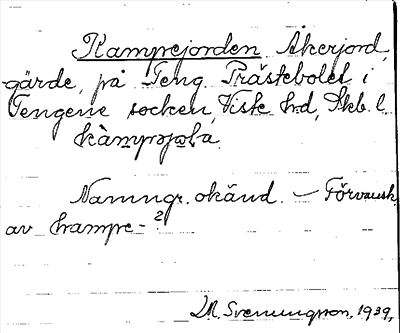 Kampejorden Åkerjord,
gärde, på Teng Prästebolet i
Tengene socken, Viste hd, Skb. l.
Namngr. okänd. — Förvansk.
av hampe- ?
M. Svenungsson, 1939,